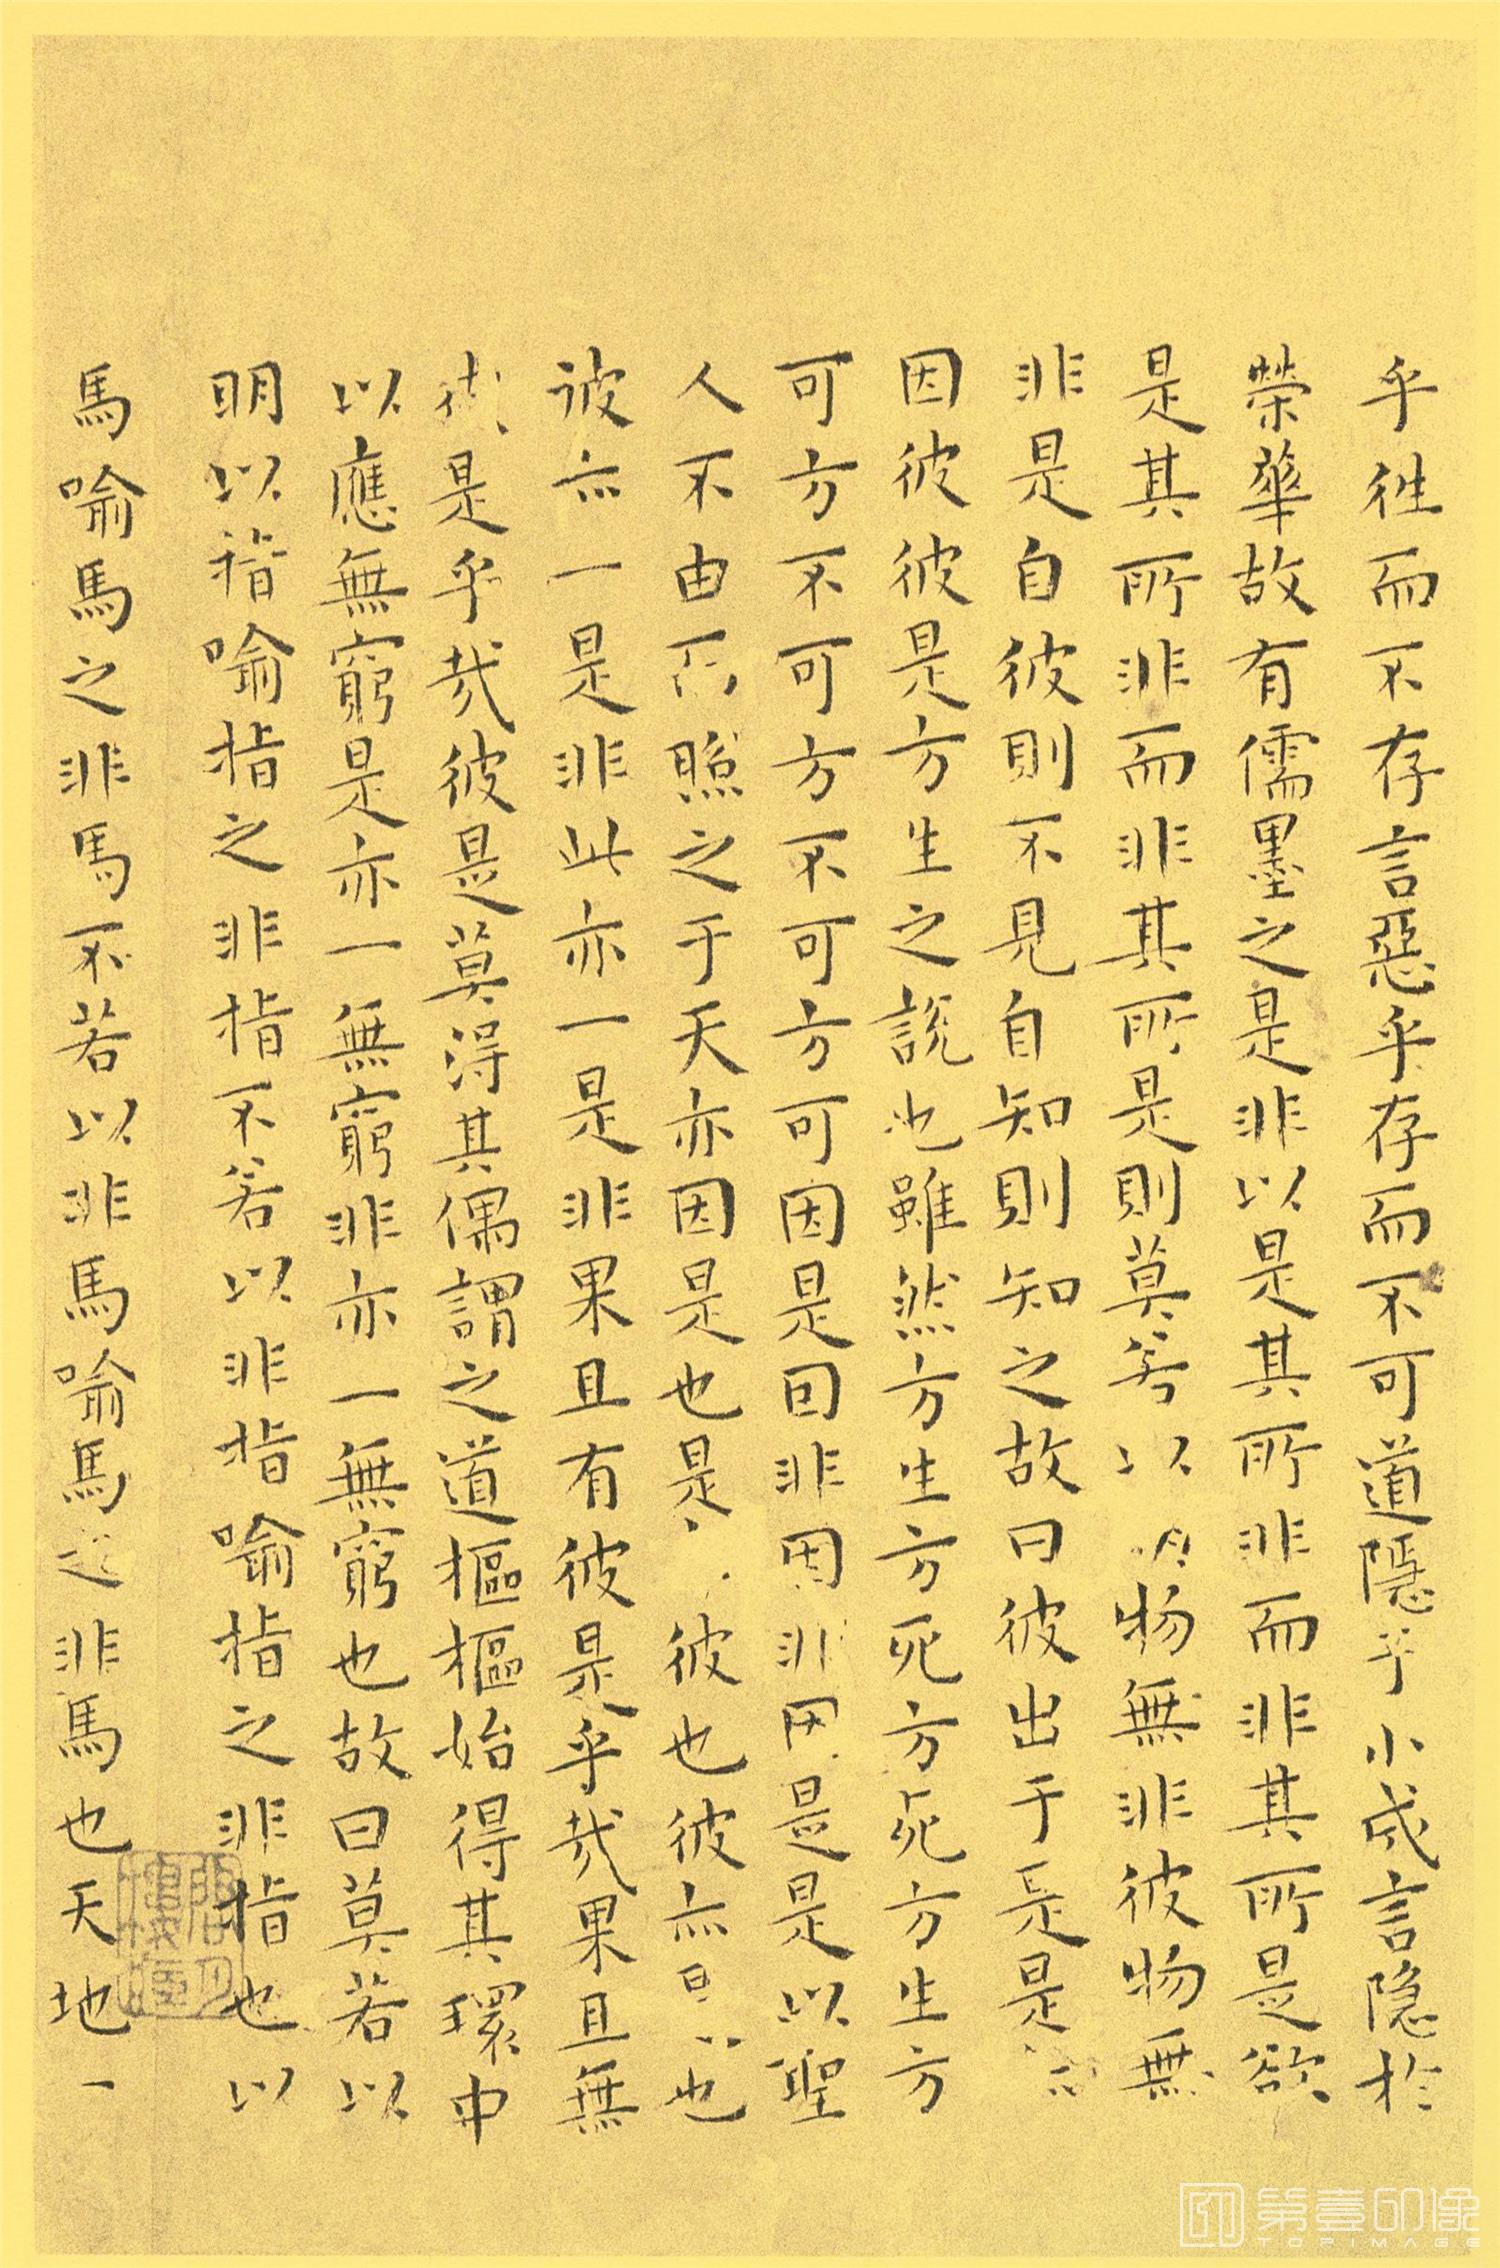 乎往而不存言惡乎存而不可道隱乎小成言隱於
榮華故有儒墨之是非以是其所非而非其所是欲
是其所非而非其所是則莫若以明物無非彼物無
非是自彼則不見自知則知之故曰彼出于是是亦
因彼彼是方生之說也雖然方生方死方死方生方
可方不可方不可方可因是因非因非因是是以聖
人不由而照之于天亦因是也是亦彼也彼亦是也
彼亦一是非此亦一是非果且有彼是乎哉果且無
彼是乎哉彼是莫得其偶謂之道樞樞始得其環中
以應無窮是亦一無窮非亦一無窮也故曰莫若以
明以指喻指之非指不若以非指喻指之非指也以
馬喻馬之非馬不若以非馬喻馬之非馬也天地一
第壹印像
TOPIMAGE